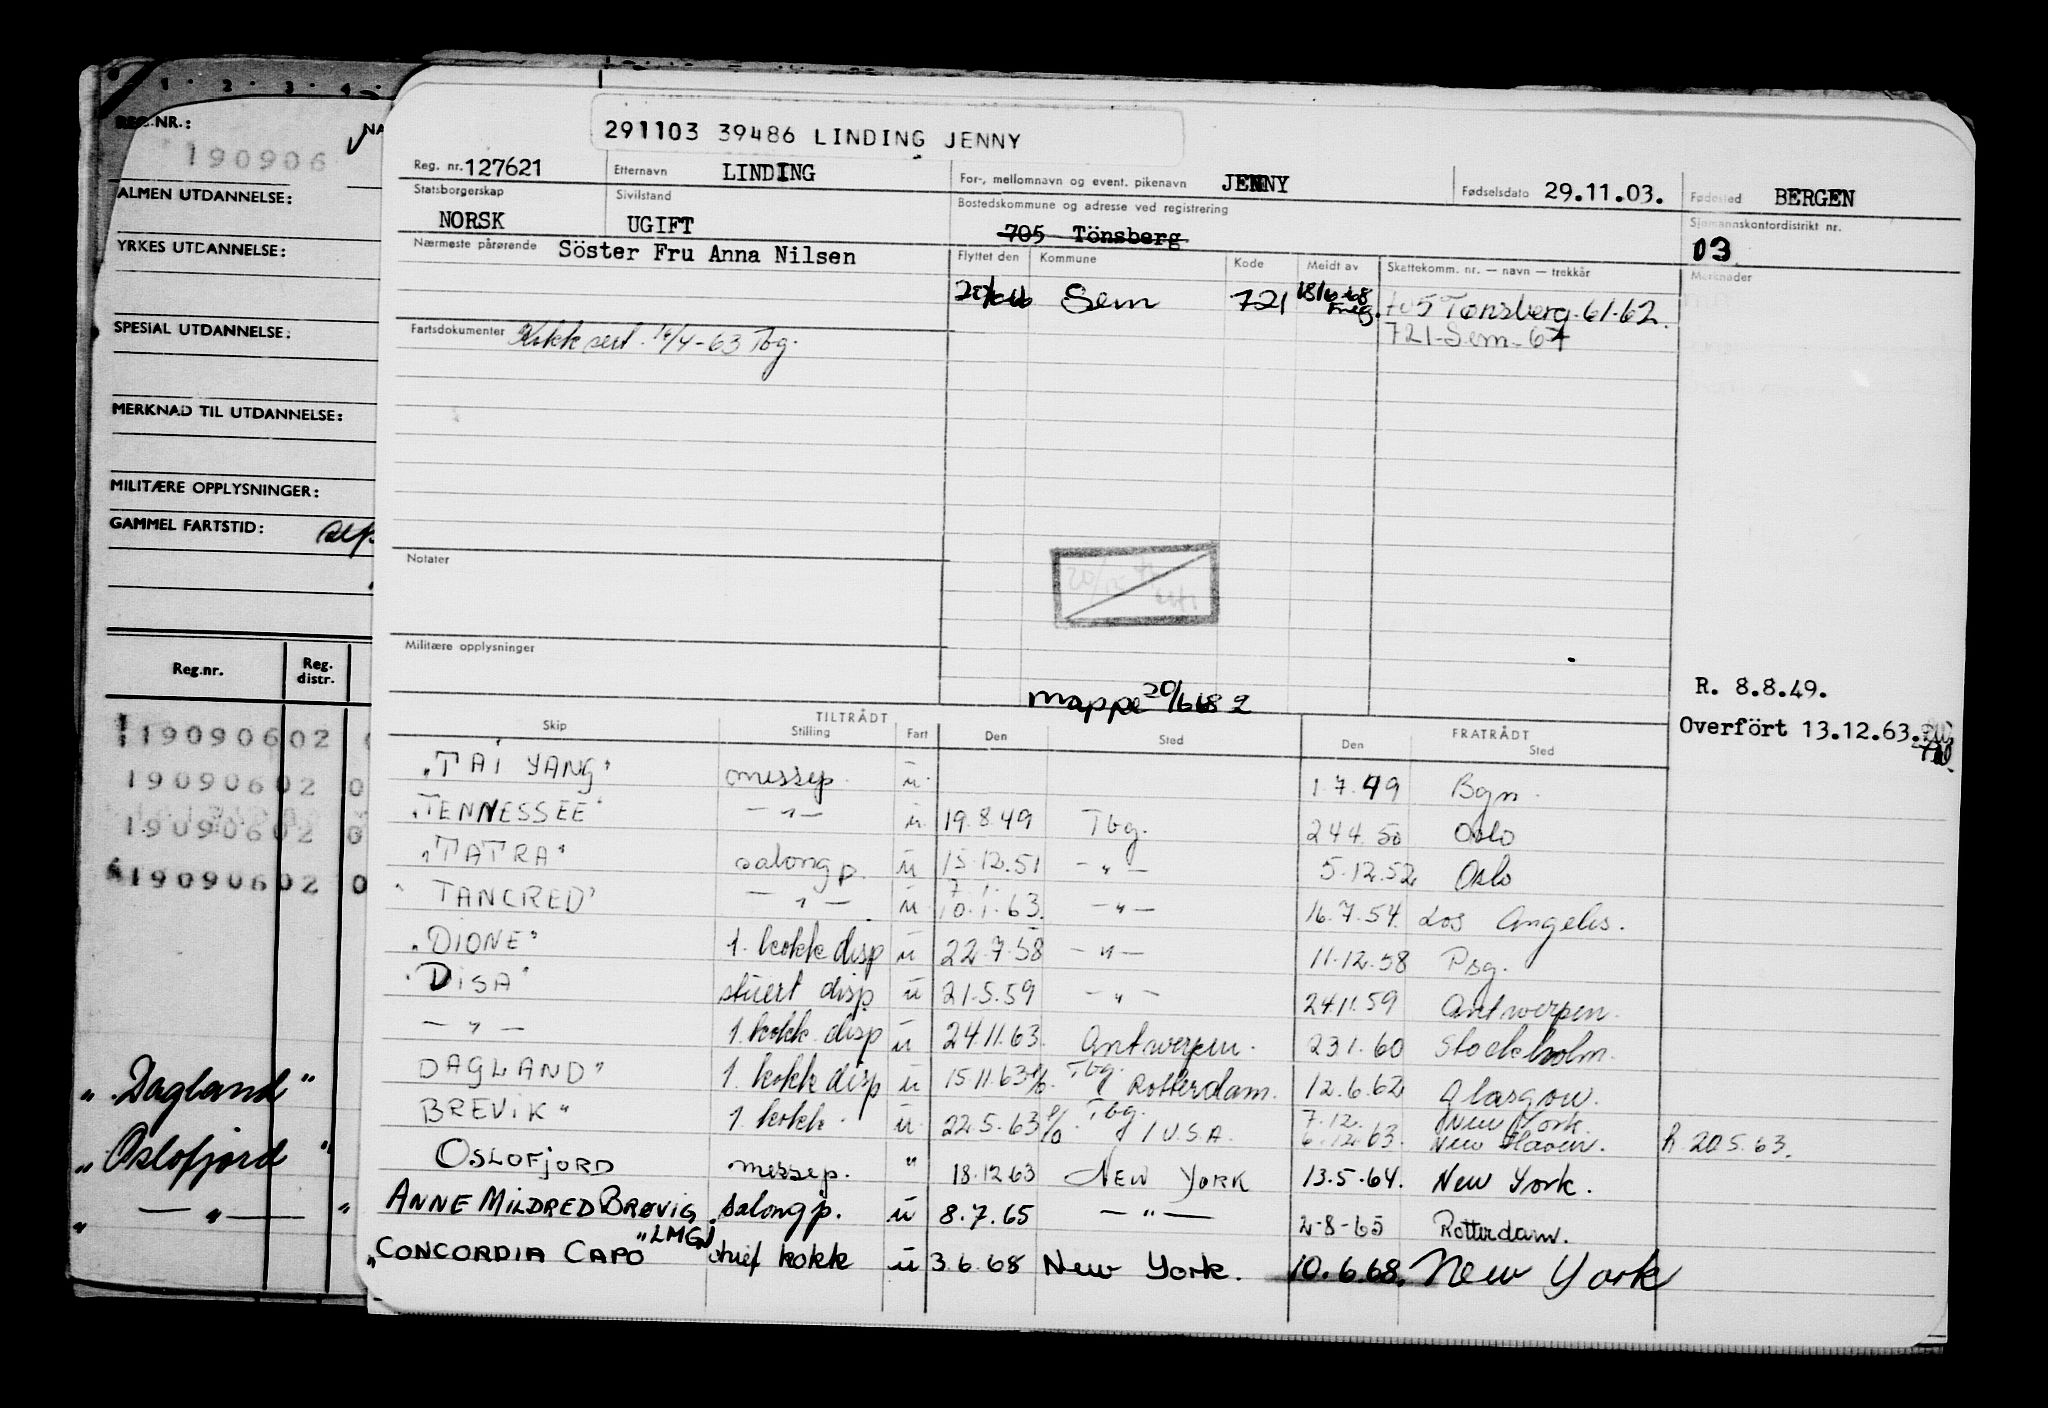 1 · 2 · 3 · 4 ·
REG.NR.:
190906
ALMEN UTDANNELSE:
YRKES UTDANNELSE:
SPESIAL UTDANNELSE:
MERKNAD TIL UTDANNELSE:
MILITÆRE OPPLYSNINGER:
GAMMEL FARTSTID:
Reg.nr. Reg. distr.
190906 02
190906 02 0
190906 02 0
190906 02 0
"Dagland"
"Oslofjord"
" — " — "
291103 39486 LINDING JENNY
Reg. nr. 127621 Etternavn LINDING For-, mellomnavn og event. pikenavn JENNY Fødselsdato 29.11.03. Fødested BERGEN
Statsborgerskap NORSK Sivilstand UGIFT Bostedskommune og adresse ved registrering 705 Tönsberg Sjømannskontordistrikt nr. 03
Nærmeste pårørende Söster Fru Anna Nilsen Flyttet den Kommune Kode Meldt av Skattekomm. nr. — navn — trekkår Merknader
Sem 721 705 Tønsberg-61-62.
Fartsdokumenter Kokk sert. 16/4-63 Tbg. 721-Sem-67
Notater
Militære opplysninger
R. 8.8.49.
mappe 20/6 68
Overfört 13.12.63.
TILTRÅDT FRATRÅDT
Skip Stilling Fart Den Sted Den Sted
"TAI YANG" messep. u. 1.7.49 Bgn.
"TENNESSEE" — " — u. 19.8.49 Tbg. 24.4.50 Oslo
"TATRA" salongp. u 15.12.51 — " — 5.12.52 Oslo
"TANCRED" — " — u 7.1. 10.1.63. — " — 16.7.54. Los Angeles.
"DIONE" 1. kokk disp u 22.7.58 — " — 11.12.58 Psg.
"DISA" stuert disp u 21.5.59 — " — 24.11.59 Antwerpen.
— " — 1. kokk disp u 24.11.63. Antwerpen. 23.1.60 Stockholm.
DAGLAND" 1. kokk disp u 15.11.63 Tbg. Rotterdam. 12.6.62 Glasgow.
BREVIK" 1. kokk. u 22.5.63 Tbg. / U.S.A. 7.12. New York. 6.12.63. New Haven. R 20.5.63.
OSLOFJORD messep. " 18.12.63 NEW YORK 13.5.64. New York.
ANNE MILDRED BRØVIG salongp. u 8.7.65 — " — 2-8-65 Rotterdam.
"CONCORDIA CAPO "LMGJ chief kokk u 3.6.68 New York. 10.6.68. New York